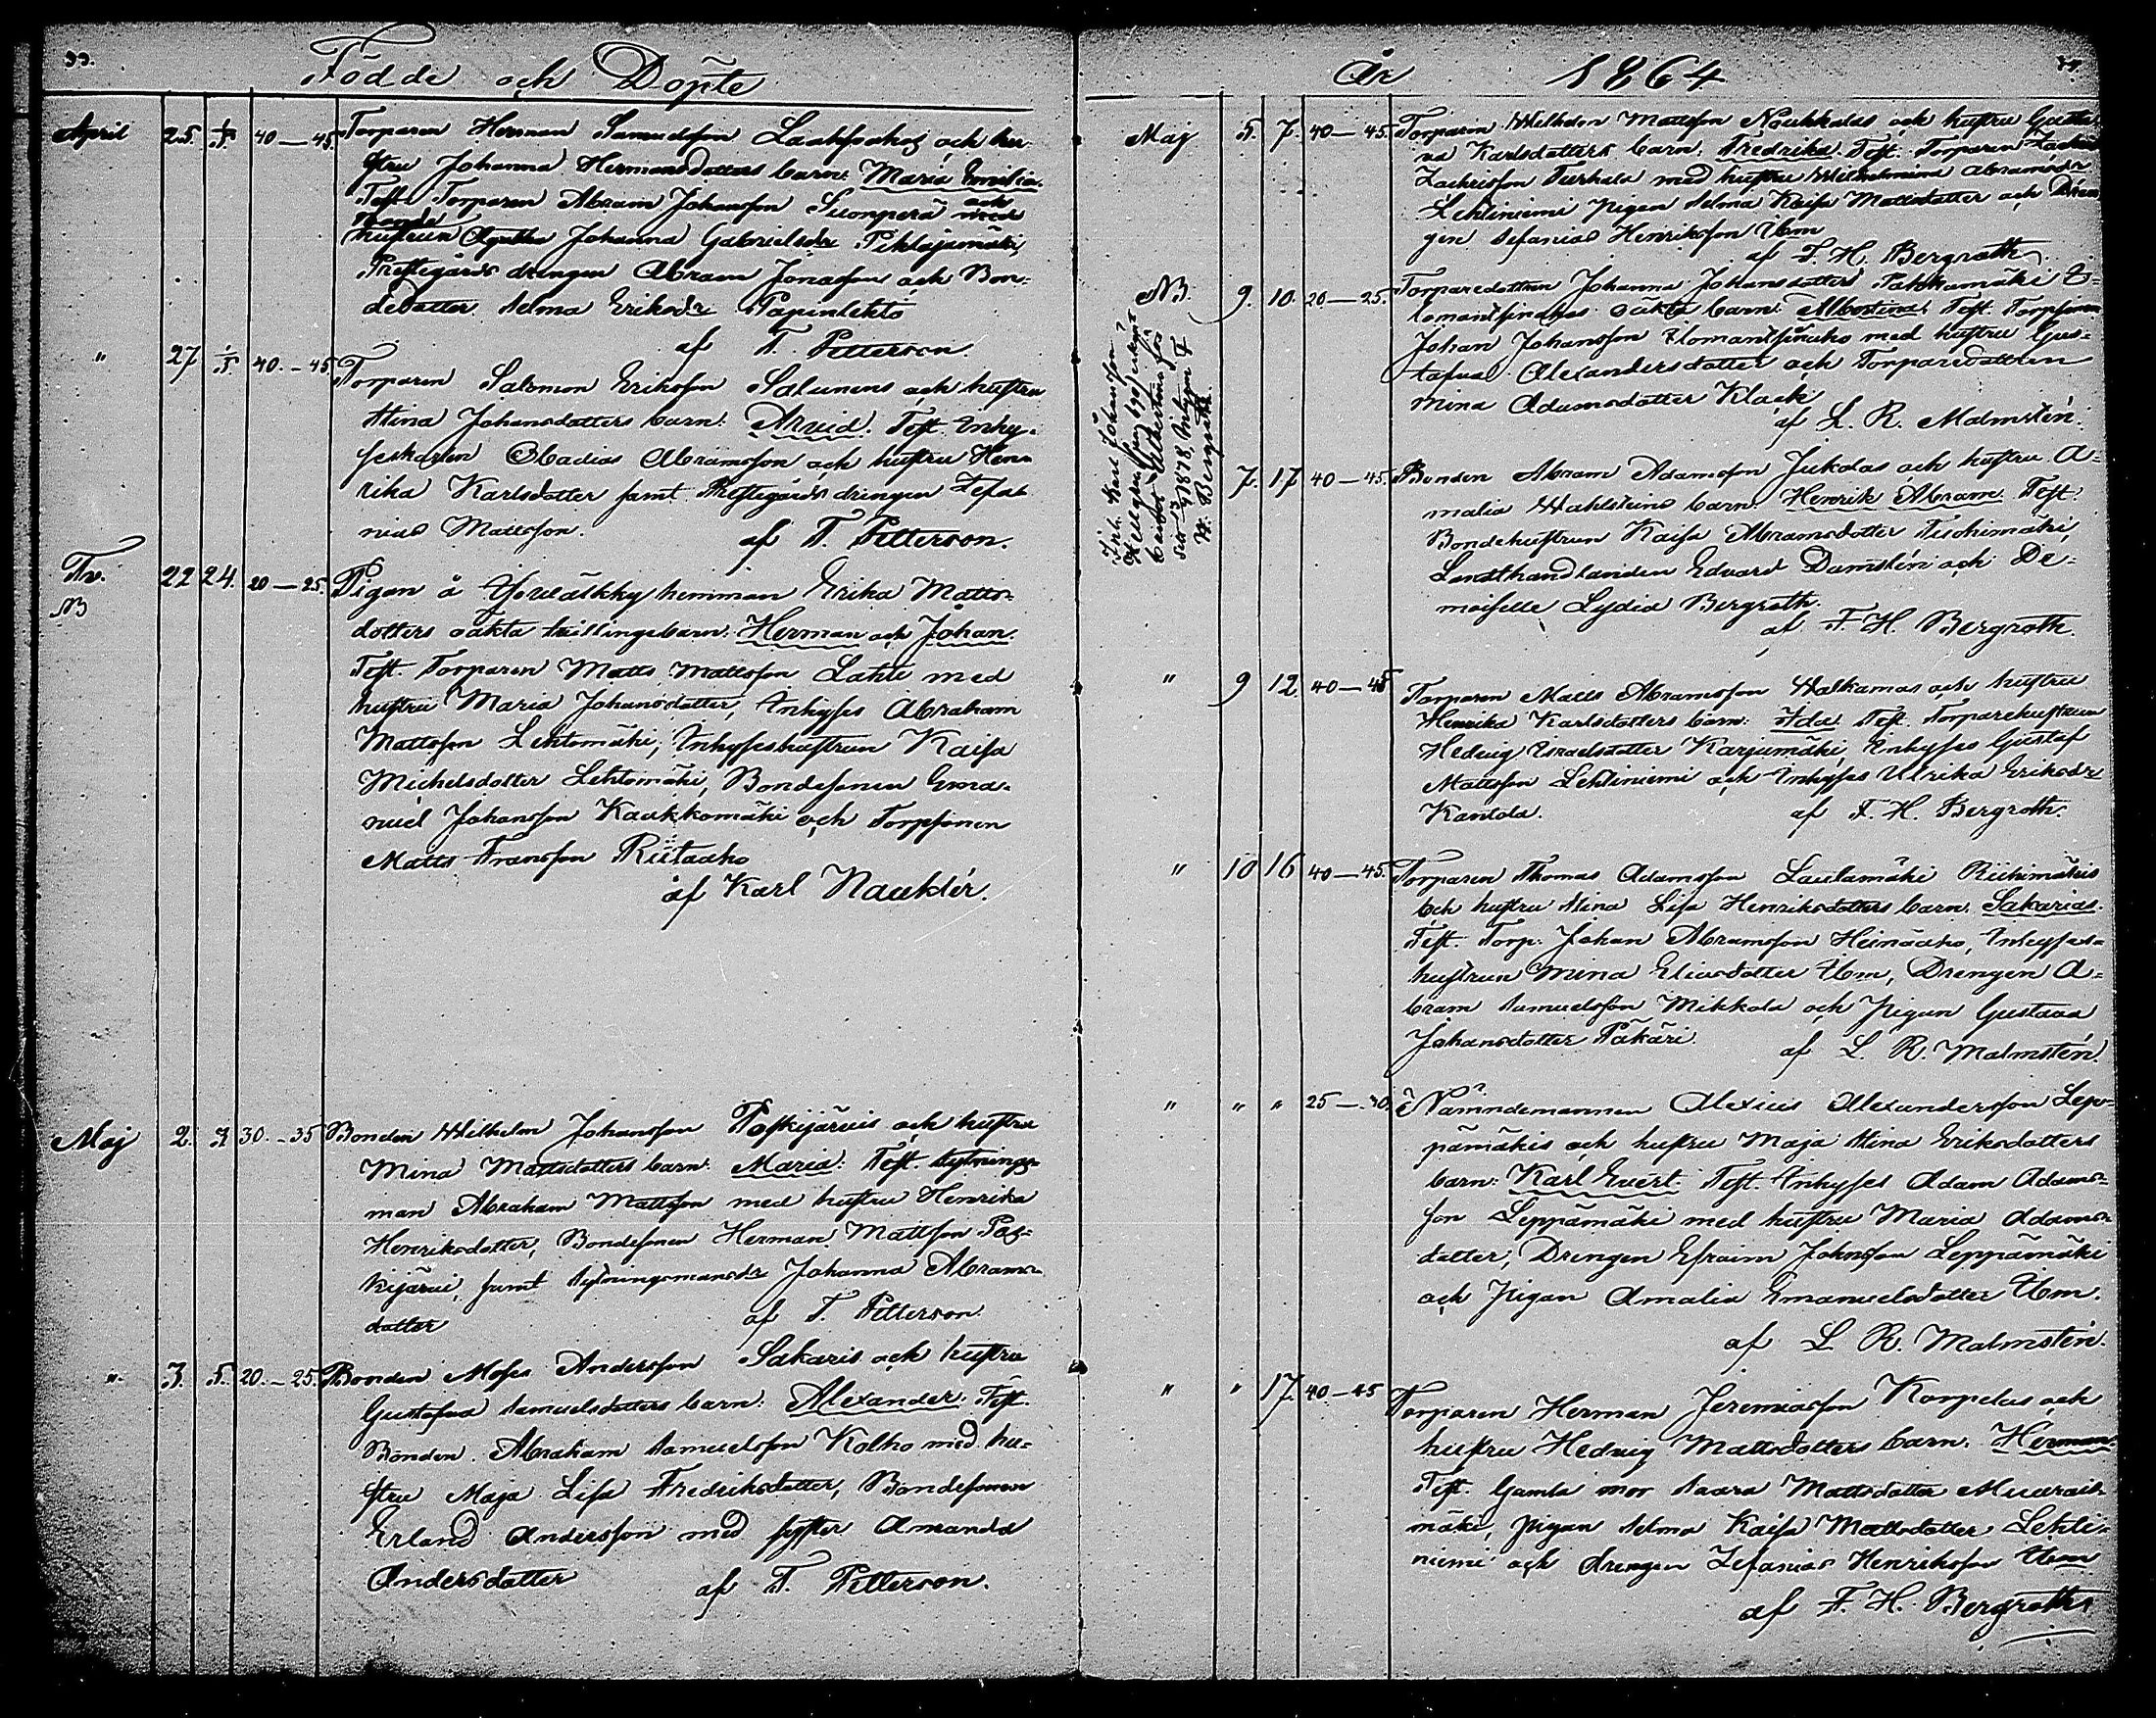 33.
Födde och Döpte
April 25. 1/5 40—45. Torparen Herman Samuelsson och hu
stru Johanna Hermansdotters barn: Maria Emilia.
Test. Torparen Abram Johansson och
hustrun Agatha Johanna Gabrielsdr Pihlajamäki,
Prestegårds drengen Abram Jonasson och Bon-
dedotter Selma Eriksdr
af T. Petterson.
" 27 1/5 40.—45. Torparen Salomon Eriksson Salunens och hustru
Stina Johansdotters barn: Arvid. Test. Inhy-
seskarlen Obadias Abramsson och hustru Hen-
rika Karlsdotter samt Prestegårds drengen Zefa-
nias Mattsson.
af T. Petterson.
Tv.
NB
22 24. 20—25. Pigan å hemman Erika Matts-
dotters oäkta tvillingebarn: Herman och Johan.
Test. Torparen Matts Mattsson Lahti med
hustru Maria Johansdotter, Inhyses Abraham
Mattsson Lehtomäki, Inhyseshustrun Kaisa
Michelsdotter Lehtomäki, Bondesonen Ema-
nuel Johansson Kaukkomäki och Torpsonen
Matts Fransson Riitaaho
af Karl Nauklér.
Maj 2. 7 30.—35 Bonden Wilhelm Johansson Paskijärvis och hustru
Mina Mattsdotters barn: Maria: Test. Sytnings-
man Abraham Mattsson med hustru Henrika
Henriksdotter, Bondesonen Herman Mattsson Pas-
kijärvi, samt Sytningsmansdr Johanna Abrams-
dotter
af T. Petterson.
" 3. 5. 20.—25. Bonden Moses Andersson Sakaris och hustru
Gustafva Samuelsdotters barn: Alexander. Test.
Bonden Abraham Samuelsson Kolho med hu-
stru Maja Lisa Fredriksdotter, Bondesonen
Erland Andersson med syster Amanda
Andersdotter
af T. Petterson.
År 1864
Maj 5. 7. 40—45. Torparen Wilhelm Mattsson Noukkalas och hustru Gusta-
va Karlsdotters barn: Fredrika. Test. Torparen
Zachrisson med hustru Wilhelmina Abramsdr
Lehtiniemi Pigan Selma Kaisa Mattsdotter och Dren-
gen Sefanias Henriksson Ibm
af F. H. Bergroth.
NB. 9. 10. 20—25. Torparedottren Johanna Johansdotters
oäkta barn: Albertina. Test. Torpsonen
Johan Johansson med hustru Gus-
tafva Alexandersdotter och Torparedottren
Mina Adamsdotter Klack
af L. R. Malmstén.
Karl Johansson
1878, intygar
Bergroth.
7. 17 40—45. Bonden Abram Adamsson Jukolas och hustru A-
malia Wahlsteins barn: Henrik Abram. Test.
Bondehustrun Kaisa Abramsdotter
Landthandlanden Edvard Damstén och De-
moiselle Lydia Bergroth.
af F. H. Bergroth.
" 9 12 40—45 Torparen Matts Abramsson Walkamas och hustru
Henrika Karlsdotters barn: Ida. Test. Torparehustrun
Hedvig Israelsdotter Karjumäki, Inhyses Gustaf
Mattsson Lehtiniemi och Inhyses Ulrika Eriksdr
Kantola.
af F. H. Bergroth.
" 10 16 40—45. Torparen Thomas Adamsson Lautamäki Riihimäkis
och hustru Stina Lisa Henriksdotters barn: Sakarias.
Test. Torp. Johan Abramsson Heinäaho, Inhyses-
hustrun Mina Eliasdotter Ibm, Drengen A-
bram Samuelsson Mikkola och Pigan Gustava
Johansdotter Päkäri.
af L. R. Malmstén.
" " " 25—30. Nämndemannen Alexius Alexandersson Lep-
pämäkis och hustru Maja Stina Eriksdotters
barn: Karl Evert. Test. Inhyses Adam Adams-
son Leppämäki med hustru Maria Adams-
dotter, Drengen Efraim Johnsson Leppämäki
och Pigan Amalia Emanuelsdotter Ibm.
af L. R. Malmstén.
" " 17. 40—45 Torparen Herman Jeremiasson Korpelas och
hustru Hedvig Mattsdotters barn: Herman.
Test. Gamla mor Saara Mattsdotter
mäki, Pigan Selma Kaisa Mattsdotter Lehti-
niemi och drengen Zefanias Henriksson Ibm
af F. H. Bergroth